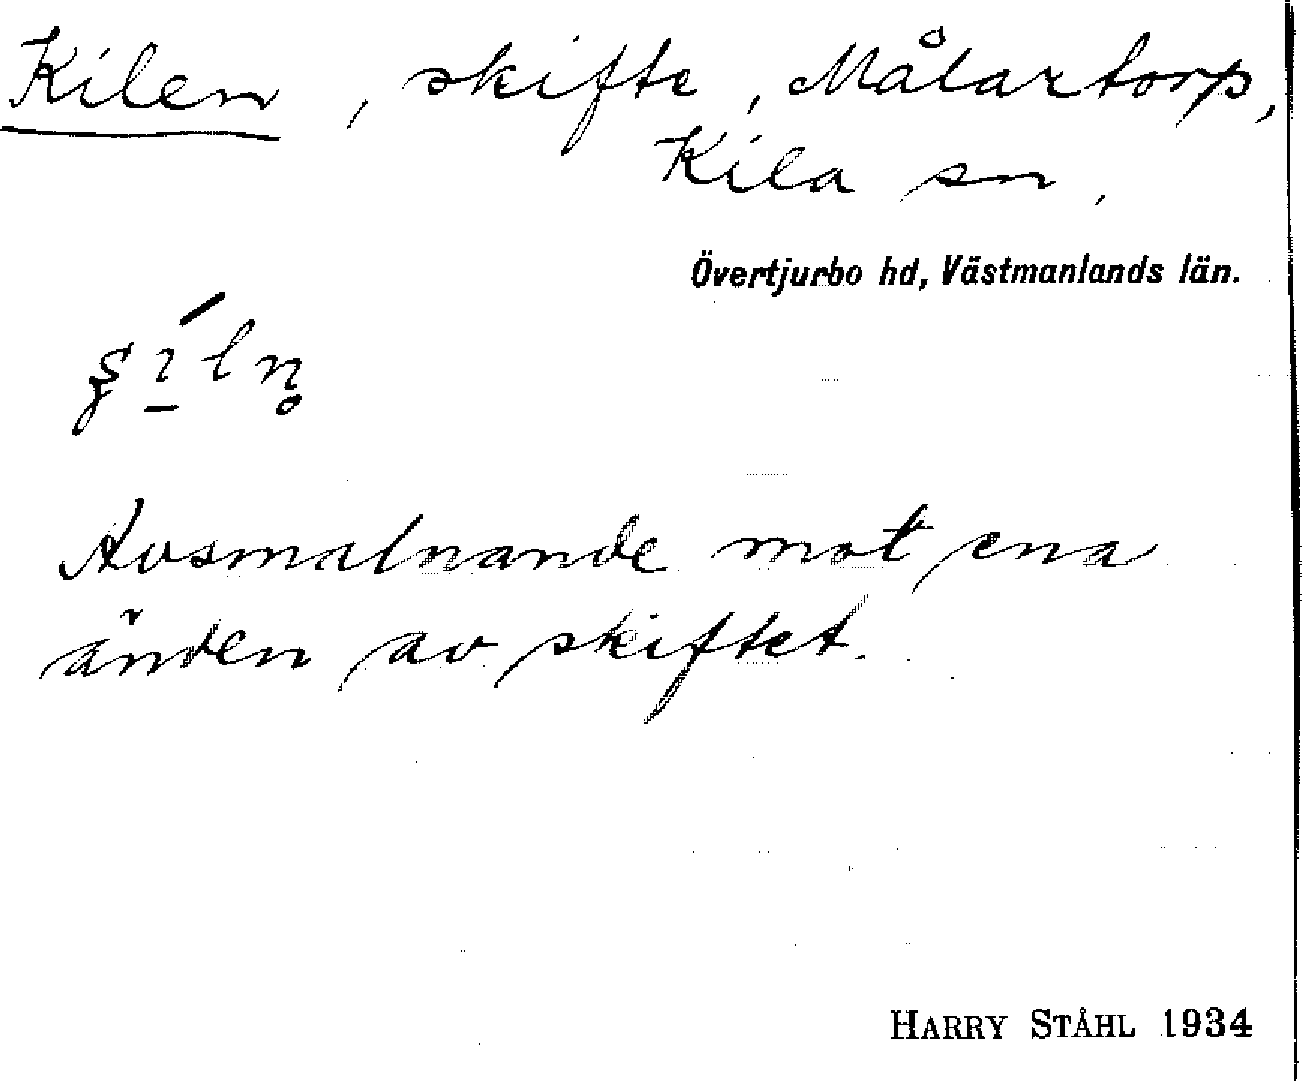 Kilen, skifte, Målartorp,
Kila sn,
Övertjurbo hd, Västmanlands län.
Avsmalnande mot ena
änden av skiftet.
HARRY STÅHL 1934